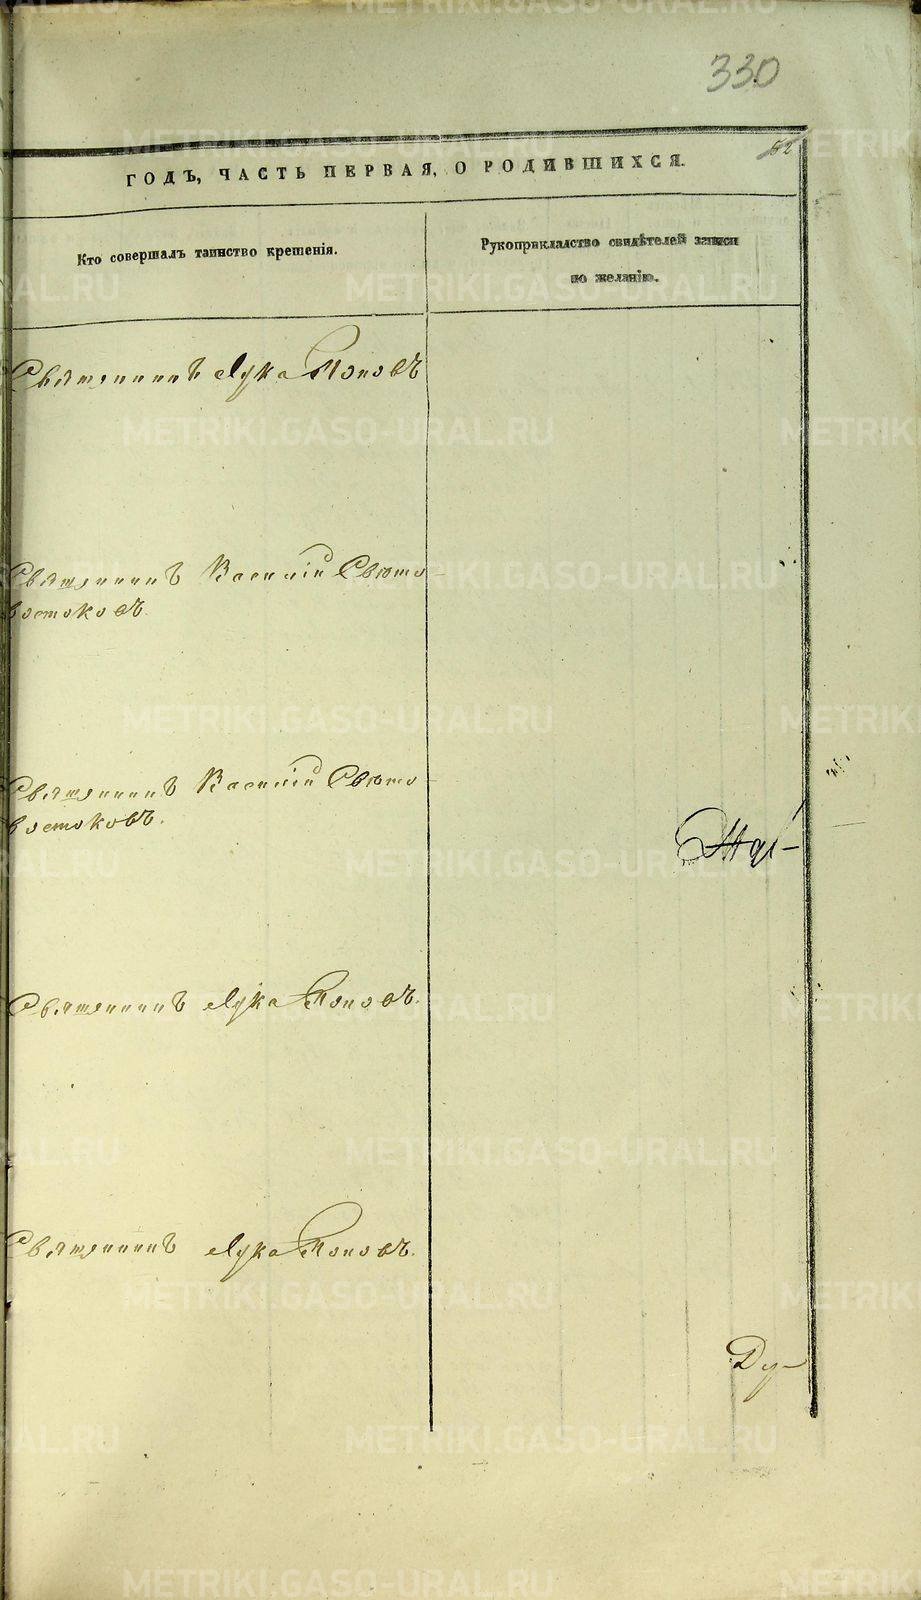 330
62
ГОДЪ, ЧАСТЬ ПЕРВАЯ, О РОДИВШИХСЯ.
Кто совершалъ таинство крещенія.
Рукоприкладство свидѣтелей записи
по желанію.
Священникъ Лука Поповъ
Священникъ Василій Свѣто-
востоковъ.
Священникъ Василій Свѣто-
востоковъ.
Священникъ Лука Поповъ.
Священникъ Лука Поповъ.
Ду-
METRIKI.GASO-URAL.RU